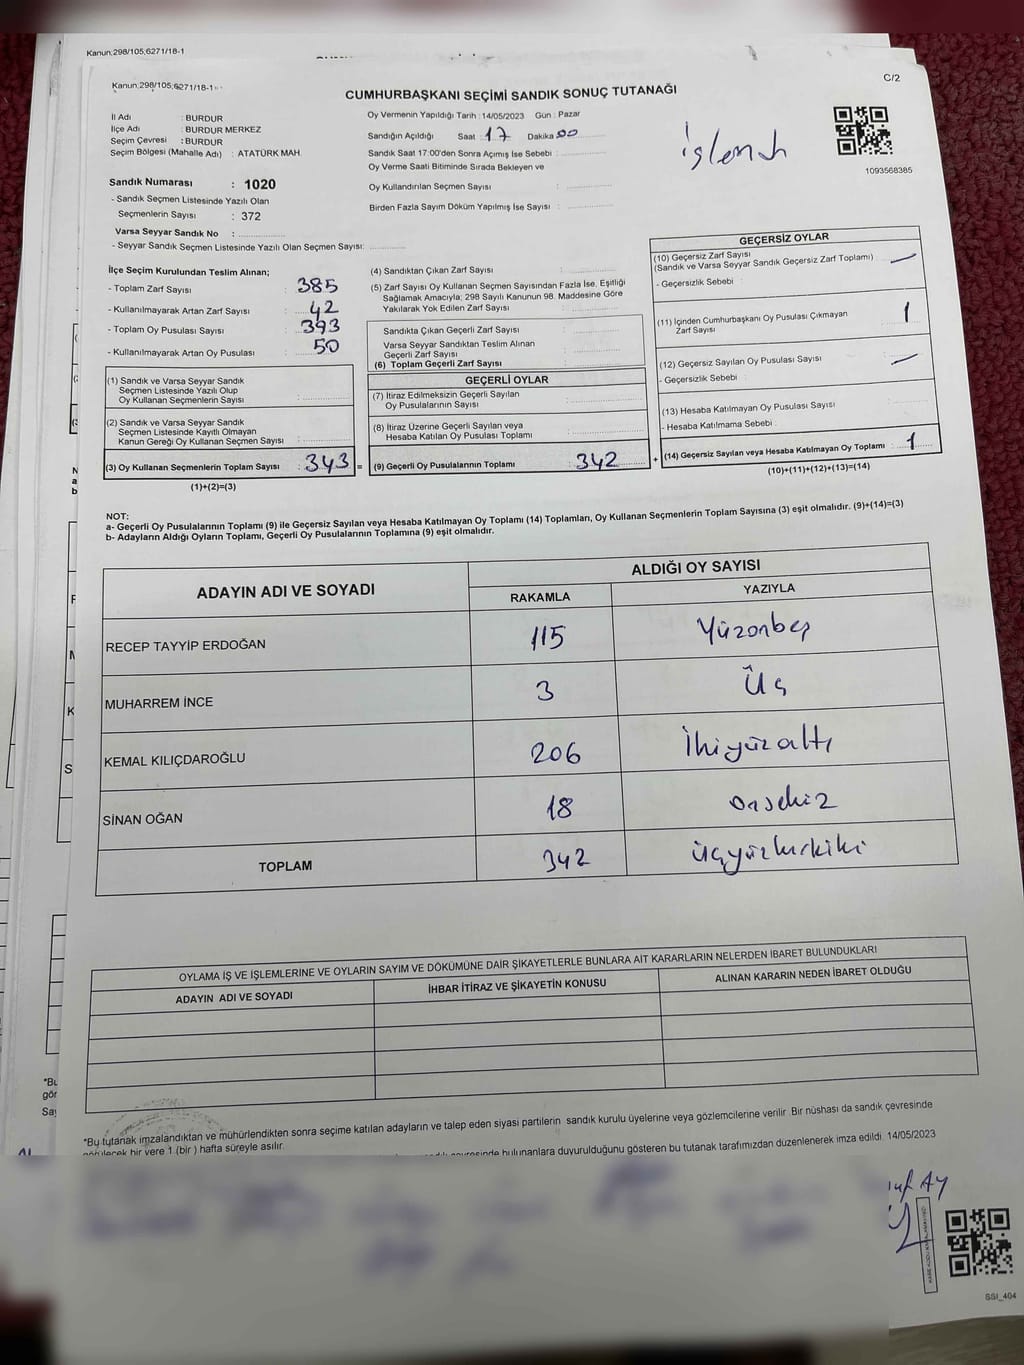 Kanun;298/105;6271/18-1
Kanun,298/105;6271/18-1
C/2
CUMHURBAŞKANI SEÇİMİ SANDIK SONUÇ TUTANAĞI
İl Adı : BURDUR
İlçe Adı : BURDUR MERKEZ
Seçim Çevresi : BURDUR
Seçim Bölgesi (Mahalle Adı) : ATATÜRK MAH.
Oy Vermenin Yapıldığı Tarih : 14/05/2023 Gün : Pazar
Sandığın Açıldığı Saat : 17 Dakika 00
Sandık Saat 17:00'den Sonra Açımış İse Sebebi :
Oy Verme Saati Bitiminde Sırada Bekleyen ve
Oy Kullandırılan Seçmen Sayısı :
Birden Fazla Sayım Döküm Yapılmış İse Sayısı :
İşlendi
1093568385
Sandık Numarası : 1020
- Sandık Seçmen Listesinde Yazılı Olan
Seçmenlerin Sayısı : 372
Varsa Seyyar Sandık No :
- Seyyar Sandık Seçmen Listesinde Yazılı Olan Seçmen Sayısı:
İlçe Seçim Kurulundan Teslim Alınan;
- Toplam Zarf Sayısı : 385
- Kullanılmayarak Artan Zarf Sayısı : 42
- Toplam Oy Pusulası Sayısı : 393
- Kullanılmayarak Artan Oy Pusulası : 50
(1) Sandık ve Varsa Seyyar Sandık
Seçmen Listesinde Yazılı Olup
Oy Kullanan Seçmenlerin Sayısı :
(2) Sandık ve Varsa Seyyar Sandık
Seçmen Listesinde Kayıtlı Olmayan
Kanun Gereği Oy Kullanan Seçmen Sayısı :
(3) Oy Kullanan Seçmenlerin Toplam Sayısı : 343 =
(1)+(2)=(3)
(4) Sandıktan Çıkan Zarf Sayısı :
(5) Zarf Sayısı Oy Kullanan Seçmen Sayısından Fazla İse, Eşitliği
Sağlamak Amacıyla; 298 Sayılı Kanunun 98. Maddesine Göre
Yakılarak Yok Edilen Zarf Sayısı :
Sandıkta Çıkan Geçerli Zarf Sayısı :
Varsa Seyyar Sandıktan Teslim Alınan
Geçerli Zarf Sayısı :
(6) Toplam Geçerli Zarf Sayısı :
GEÇERLİ OYLAR
(7) İtiraz Edilmeksizin Geçerli Sayılan
Oy Pusulalarının Sayısı :
(8) İtiraz Üzerine Geçerli Sayılan veya
Hesaba Katılan Oy Pusulası Toplamı :
(9) Geçerli Oy Pusulalarının Toplamı : 342 +
GEÇERSİZ OYLAR
(10) Geçersiz Zarf Sayısı
(Sandık ve Varsa Seyyar Sandık Geçersiz Zarf Toplamı) : —
- Geçersizlik Sebebi :
(11) İçinden Cumhurbaşkanı Oy Pusulası Çıkmayan
Zarf Sayısı : 1
(12) Geçersiz Sayılan Oy Pusulası Sayısı : —
- Geçersizlik Sebebi :
(13) Hesaba Katılmayan Oy Pusulası Sayısı :
- Hesaba Katılmama Sebebi :
(14) Geçersiz Sayılan veya Hesaba Katılmayan Oy Toplamı : 1
(10)+(11)+(12)+(13)=(14)
NOT:
a- Geçerli Oy Pusulalarının Toplamı (9) ile Geçersiz Sayılan veya Hesaba Katılmayan Oy Toplamı (14) Toplamları, Oy Kullanan Seçmenlerin Toplam Sayısına (3) eşit olmalıdır. (9)+(14)=(3)
b- Adayların Aldığı Oyların Toplamı, Geçerli Oy Pusulalarının Toplamına (9) eşit olmalıdır.
ADAYIN ADI VE SOYADI
ALDIĞI OY SAYISI
RAKAMLA YAZIYLA
RECEP TAYYİP ERDOĞAN 115 Yüzonbeş
MUHARREM İNCE 3 Üç
KEMAL KILIÇDAROĞLU 206 İkiyüzaltı
SİNAN OĞAN 18 onsekiz
TOPLAM 342 üçyüzkırkiki
OYLAMA İŞ VE İŞLEMLERİNE VE OYLARIN SAYIM VE DÖKÜMÜNE DAİR ŞİKAYETLERLE BUNLARA AİT KARARLARIN NELERDEN İBARET BULUNDUKLARI
ADAYIN ADI VE SOYADI
İHBAR İTİRAZ VE ŞİKAYETİN KONUSU
ALINAN KARARIN NEDEN İBARET OLDUĞU
*Bu tutanak imzalandıktan ve mühürlendikten sonra seçime katılan adayların ve talep eden siyasi partilerin sandık kurulu üyelerine veya gözlemcilerine verilir. Bir nüshası da sandık çevresinde
görülecek bir yere 1 (bir) hafta süreyle asılır.
bulunanlara duyurulduğunu gösteren bu tutanak tarafımızdan düzenlenerek imza edildi. 14/05/2023
Ay
SSI_404